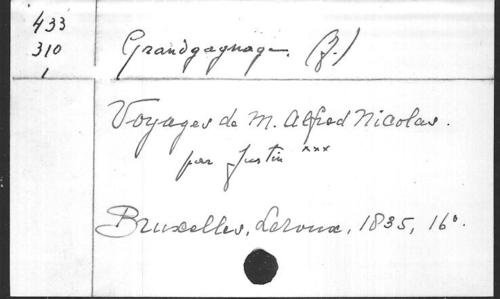 433
310
1
Grandgagnage. (J.)
Voyages de M. Alfred Nicolas.
par Justin xxx
Bruxelles, Leroux, 1835, 16°.